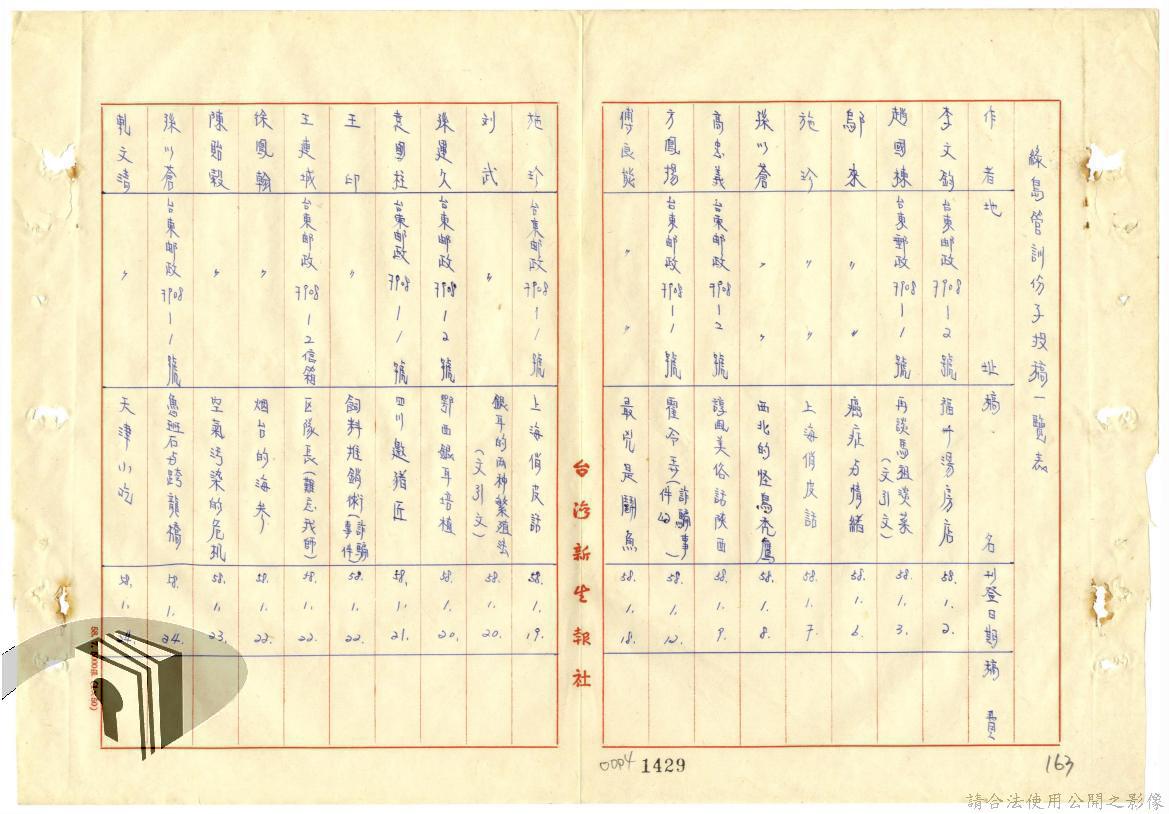 綠島管訓份子投稿一覽表
作者 地址 稿名 刊登日期 稿費
李文鈞 台東郵政7908-2號 福州湯房店 58. 1. 2.
趙國棟 台東郵政7908-1號 再談馬祖淡菜(文引文) 58. 1. 3.
鄔來 〃 癌症与情緒 58. 1. 6.
施珍 〃 上海俏皮話 58. 1. 7.
孫以蒼 〃 〃 西北的怪鳥禿鷹 58. 1. 8.
高忠義 台東邮政7908-2號 淳風美俗話陝西 58. 1. 9.
方鳳揚 台東邮政7908-1號 (詐騙事件的) 58. 1. 12.
傅良能 〃 〃 最兇是鬪魚 58. 1. 18.
台灣新生報社
施珍 台東邮政7908-1號 上海俏皮話 58. 1. 19.
刘武 〃 銀耳的兩种繁殖法(文引文) 58. 1. 20.
孫運久 台東邮政7908-2號 鄂西銀耳培植 58. 1. 20.
袁國柱 台東邮政7908-1號 四川趕猪匠 58. 1. 21.
王印 〃 飼料推銷術(詐騙事件) 58. 1. 22.
王連城 台東邮政7908-2信箱 区隊長(難忘我師) 58. 1. 22.
徐鳳翰 〃 烟台的海参 58. 1. 22.
陳貽穀 〃 空氣污染的危机 58. 1. 23.
孫以蒼 台東邮政7908-1號 魚班石与跨龍橋 58. 1. 24.
軋文清 〃 天津小吃 58. 1. 24.
0004 1429
163
請合法使用公開之影像